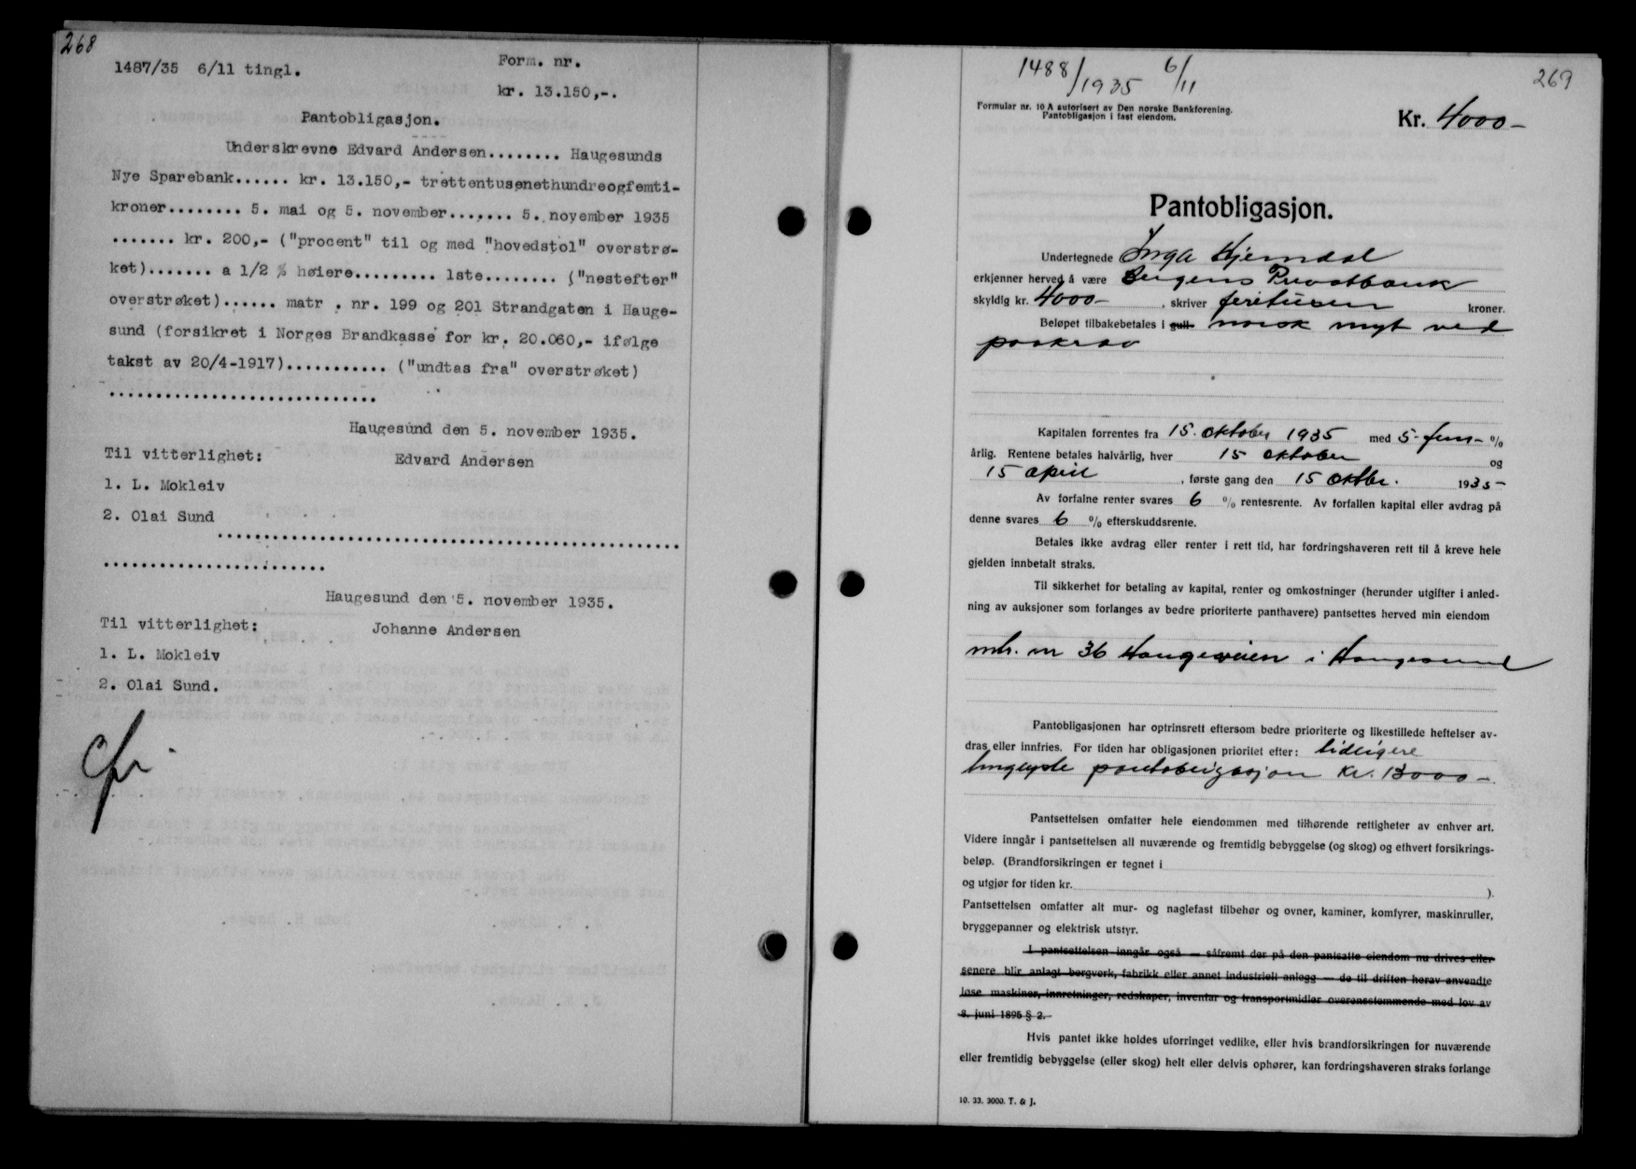 268
1487/35 6/11 tingl.
Form. nr.
kr. 13.150,-.
Pantobligasjon.
Underskrevne Edvard Andersen........ Haugesunds
Nye Sparebank...... kr. 13.150,- trettentusenethundreogfemti-
kroner........ 5. mai og 5. november....... 5. november 1935
....... kr. 200,- ("procent" til og med "hovedstol" overstrø-
ket)....... a 1/2 % høiere......... 1ste........ ("nestefter"
overstrøket)...... matr. nr. 199 og 201 Strandgaten i Hauge-
sund (forsikret i Norges Brandkasse for kr. 20.060,- ifølge
takst av 20/4-1917)........... ("undtas fra" overstrøket)
.............................
Haugesund den 5. november 1935.
Til vitterlighet:
Edvard Andersen
1. L. Mokleiv
2. Olai Sund
..................................................
........................
Haugesund den 5. november 1935.
Til vitterlighet:
Johanne Andersen
1. L. Mokleiv
2. Olai Sund.
269
1488/1935 6/11
Formular nr. 10 A autorisert av Den norske Bankforening.
Pantobligasjon i fast eiendom.
Kr. 4000-
Pantobligasjon.
Undertegnede Inga Hjemdal
erkjenner herved å være Bergens Privatbank
skyldig kr. 4000-, skriver firetusen kroner.
Beløpet tilbakebetales i gull norsk mynt ved
paakrav
Kapitalen forrentes fra 15. oktober 1935 med 5-fem- %
årlig. Rentene betales halvårlig, hver 15 oktober og
15 april, første gang den 15 oktbr. 1935-
Av forfalne renter svares 6 % rentesrente. Av forfallen kapital eller avdrag på
denne svares 6 % efterskuddsrente.
Betales ikke avdrag eller renter i rett tid, har fordringshaveren rett til å kreve hele
gjelden innbetalt straks.
Til sikkerhet for betaling av kapital, renter og omkostninger (herunder utgifter i anled-
ning av auksjoner som forlanges av bedre prioriterte panthavere) pantsettes herved min eiendom
mtr. nr 36 Haugeveien i Haugesund
Pantobligasjonen har optrinsrett eftersom bedre prioriterte og likestillede heftelser av-
dras eller innfries. For tiden har obligasjonen prioritet efter: tidligere
tinglyste pantobligasjon kr. 13000-
Pantsettelsen omfatter hele eiendommen med tilhørende rettigheter av enhver art.
Videre inngår i pantsettelsen all nuværende og fremtidig bebyggelse (og skog) og ethvert forsikrings-
beløp. (Brandforsikringen er tegnet i
og utgjør for tiden kr. ).
Pantsettelsen omfatter alt mur- og naglefast tilbehør og ovner, kaminer, komfyrer, maskinruller,
bryggepanner og elektrisk utstyr.
I pantsettelsen inngår også — såfremt der på den pantsatte eiendom nu drives eller
senere blir anlagt bergverk, fabrikk eller annet industrielt anlegg — de til driften herav anvendte
løse maskiner, innretninger, redskaper, inventar og transportmidler overensstemmende med lov av
8. juni 1895 § 2.
Hvis pantet ikke holdes uforringet vedlike, eller hvis brandforsikringen for nuværende
eller fremtidig bebyggelse (eller skog) helt eller delvis ophører, kan fordringshaveren straks forlange
10. 33. 3000. T. & J.